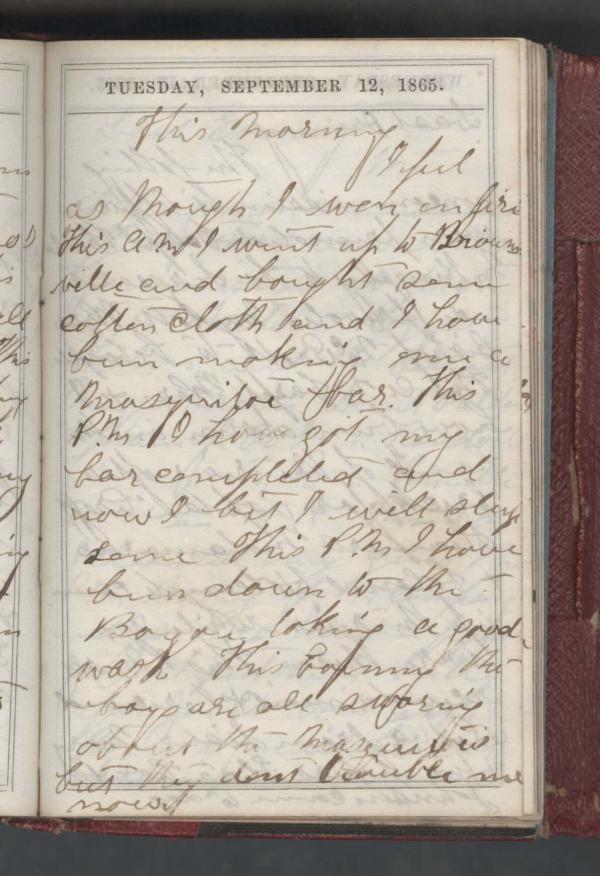 TUESDAY, SEPTEMBER 12, 1865.
This Morning
I feel
as though I wer on fire
This A M I went up to Browns
ville and bought some
cotten cloth and I have
bin making me a
Masquitoe Bar. This
P.M. I have got my
bar completed and
now I bet I will sleep
some This P.M I have
bin down to the
Bayou taking a good
wash This Evning the
boys are all swaring
about the Masquitoes
but they dont trouble me
now